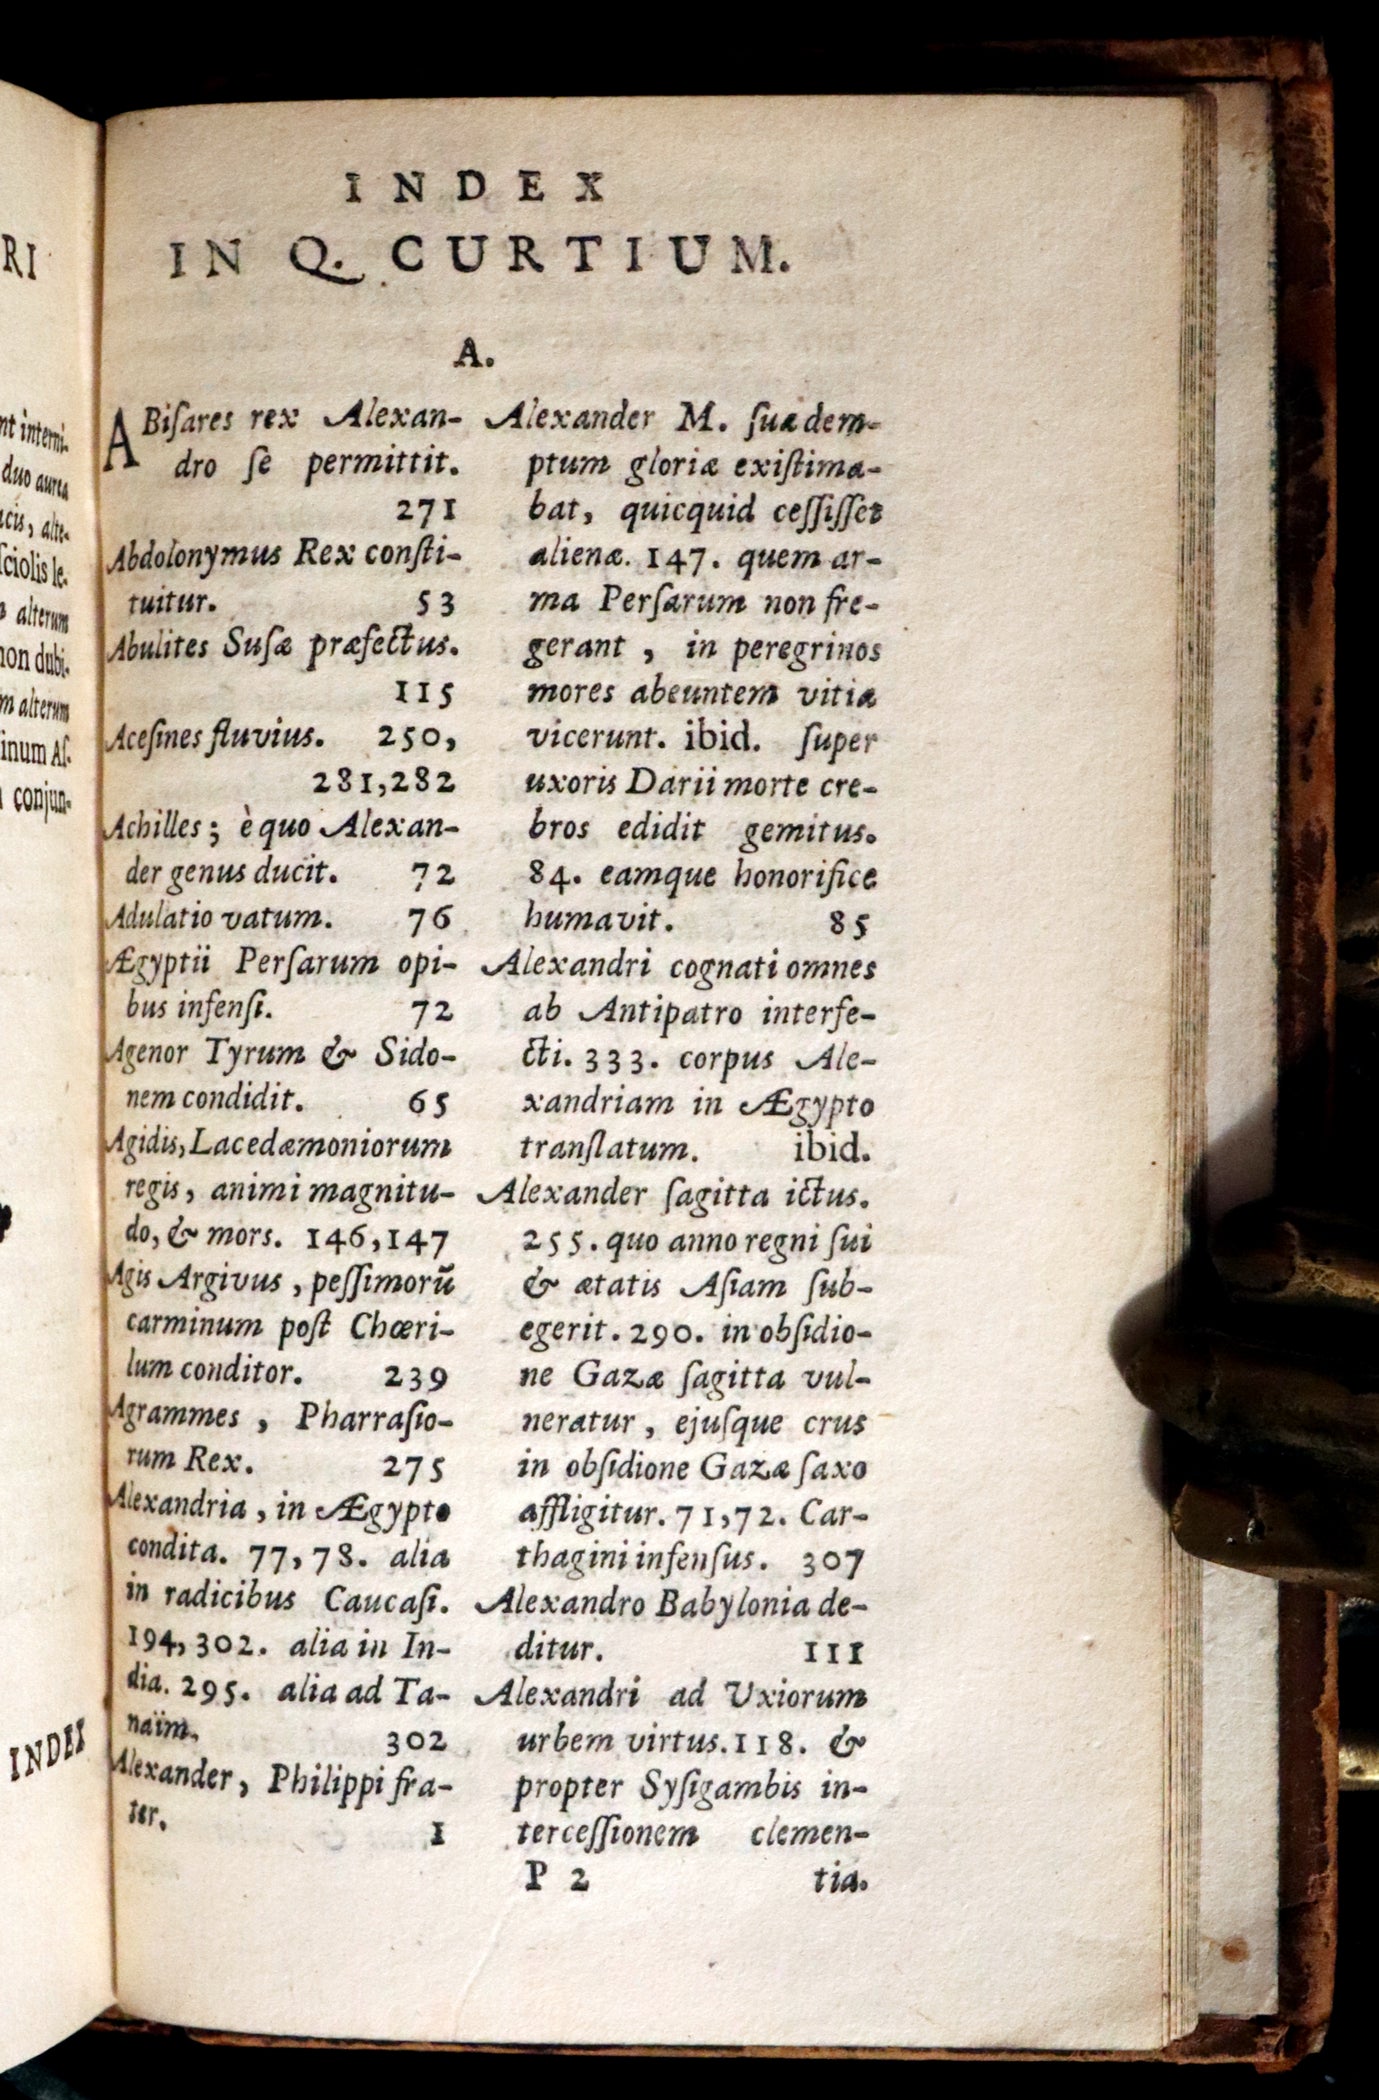 RI
nt interni-
duo aurea
acis, alte-
ſciolis le-
alterum
non dubi-
m alterum
inum Aſ-
conjun-
INDEX
INDEX
IN Q. CURTIUM.
A.
ABiſares rex Alexan-
dro ſe permittit.
271
Abdolonymus Rex conſti-
tuitur. 53
Abulites Suſæ præfectus.
115
Aceſines fluvius. 250,
281,282
Achilles; è quo Alexan-
der genus ducit. 72
Adulatio vatum. 76
Ægyptii Perſarum opi-
bus infenſi. 72
Agenor Tyrum & Sido-
nem condidit. 65
Agidis, Lacedæmoniorum
regis, animi magnitu-
do, & mors. 146,147
Agis Argivus, peſſimorũ
carminum poſt Chœri-
lum conditor. 239
Agrammes, Pharraſio-
rum Rex. 275
Alexandria, in Ægypto
condita. 77,78. alia
in radicibus Caucaſi.
194,302. alia in In-
dia. 295. alia ad Ta-
naïm. 302
Alexander, Philippi fra-
ter. 1
Alexander M. ſuæ dem-
ptum gloriæ exiſtima-
bat, quicquid ceſſiſſet
alienæ. 147. quem ar-
ma Perſarum non fre-
gerant, in peregrinos
mores abeuntem vitia
vicerunt. ibid. ſuper
uxoris Darii morte cre-
bros edidit gemitus.
84. eamque honorifice
humavit. 85
Alexandri cognati omnes
ab Antipatro interfe-
cti. 333. corpus Ale-
xandriam in Ægypto
tranſlatum. ibid.
Alexander ſagitta ictus.
255. quo anno regni ſui
& ætatis Aſiam ſub-
egerit. 290. in obſidio-
ne Gazæ ſagitta vul-
neratur, ejuſque crus
in obſidione Gazæ ſaxo
affligitur. 71,72. Car-
thagini infenſus. 307
Alexandro Babylonia de-
ditur. 111
Alexandri ad Uxiorum
urbem virtus. 118. &
propter Syſigambis in-
terceſſionem clemen-
P 2 tia.